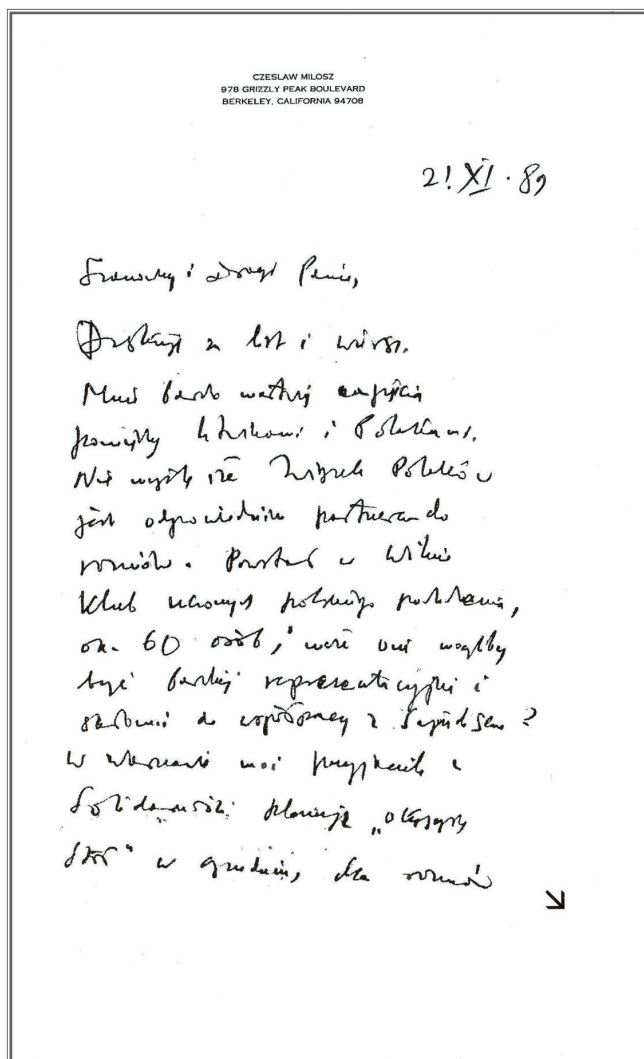 CZESLAW MILOSZ
978 GRIZZLY PEAK BOULEVARD
BERKELEY, CALIFORNIA 94708
21 XI. 89
Szanowny i Drogi Panie,
Dziękuję za list i wiersz.
Mnie bardzo martwią napięcia
pomiędzy Litwinami i Polakami.
Nie myślę że Związek Polaków
jest odpowiednim partnerem do
rozmów. Powstał w Wilnie
Klub naukowych polskiego pochodzenia,
ok. 60 osób, może oni mogliby
być bardziej reprezentacyjni i
skłonni do współpracy z Sajudisem?
W Warszawie moi przyjaciele z
Solidarności planują „okrągły
stół" w grudniu, dla rozmów